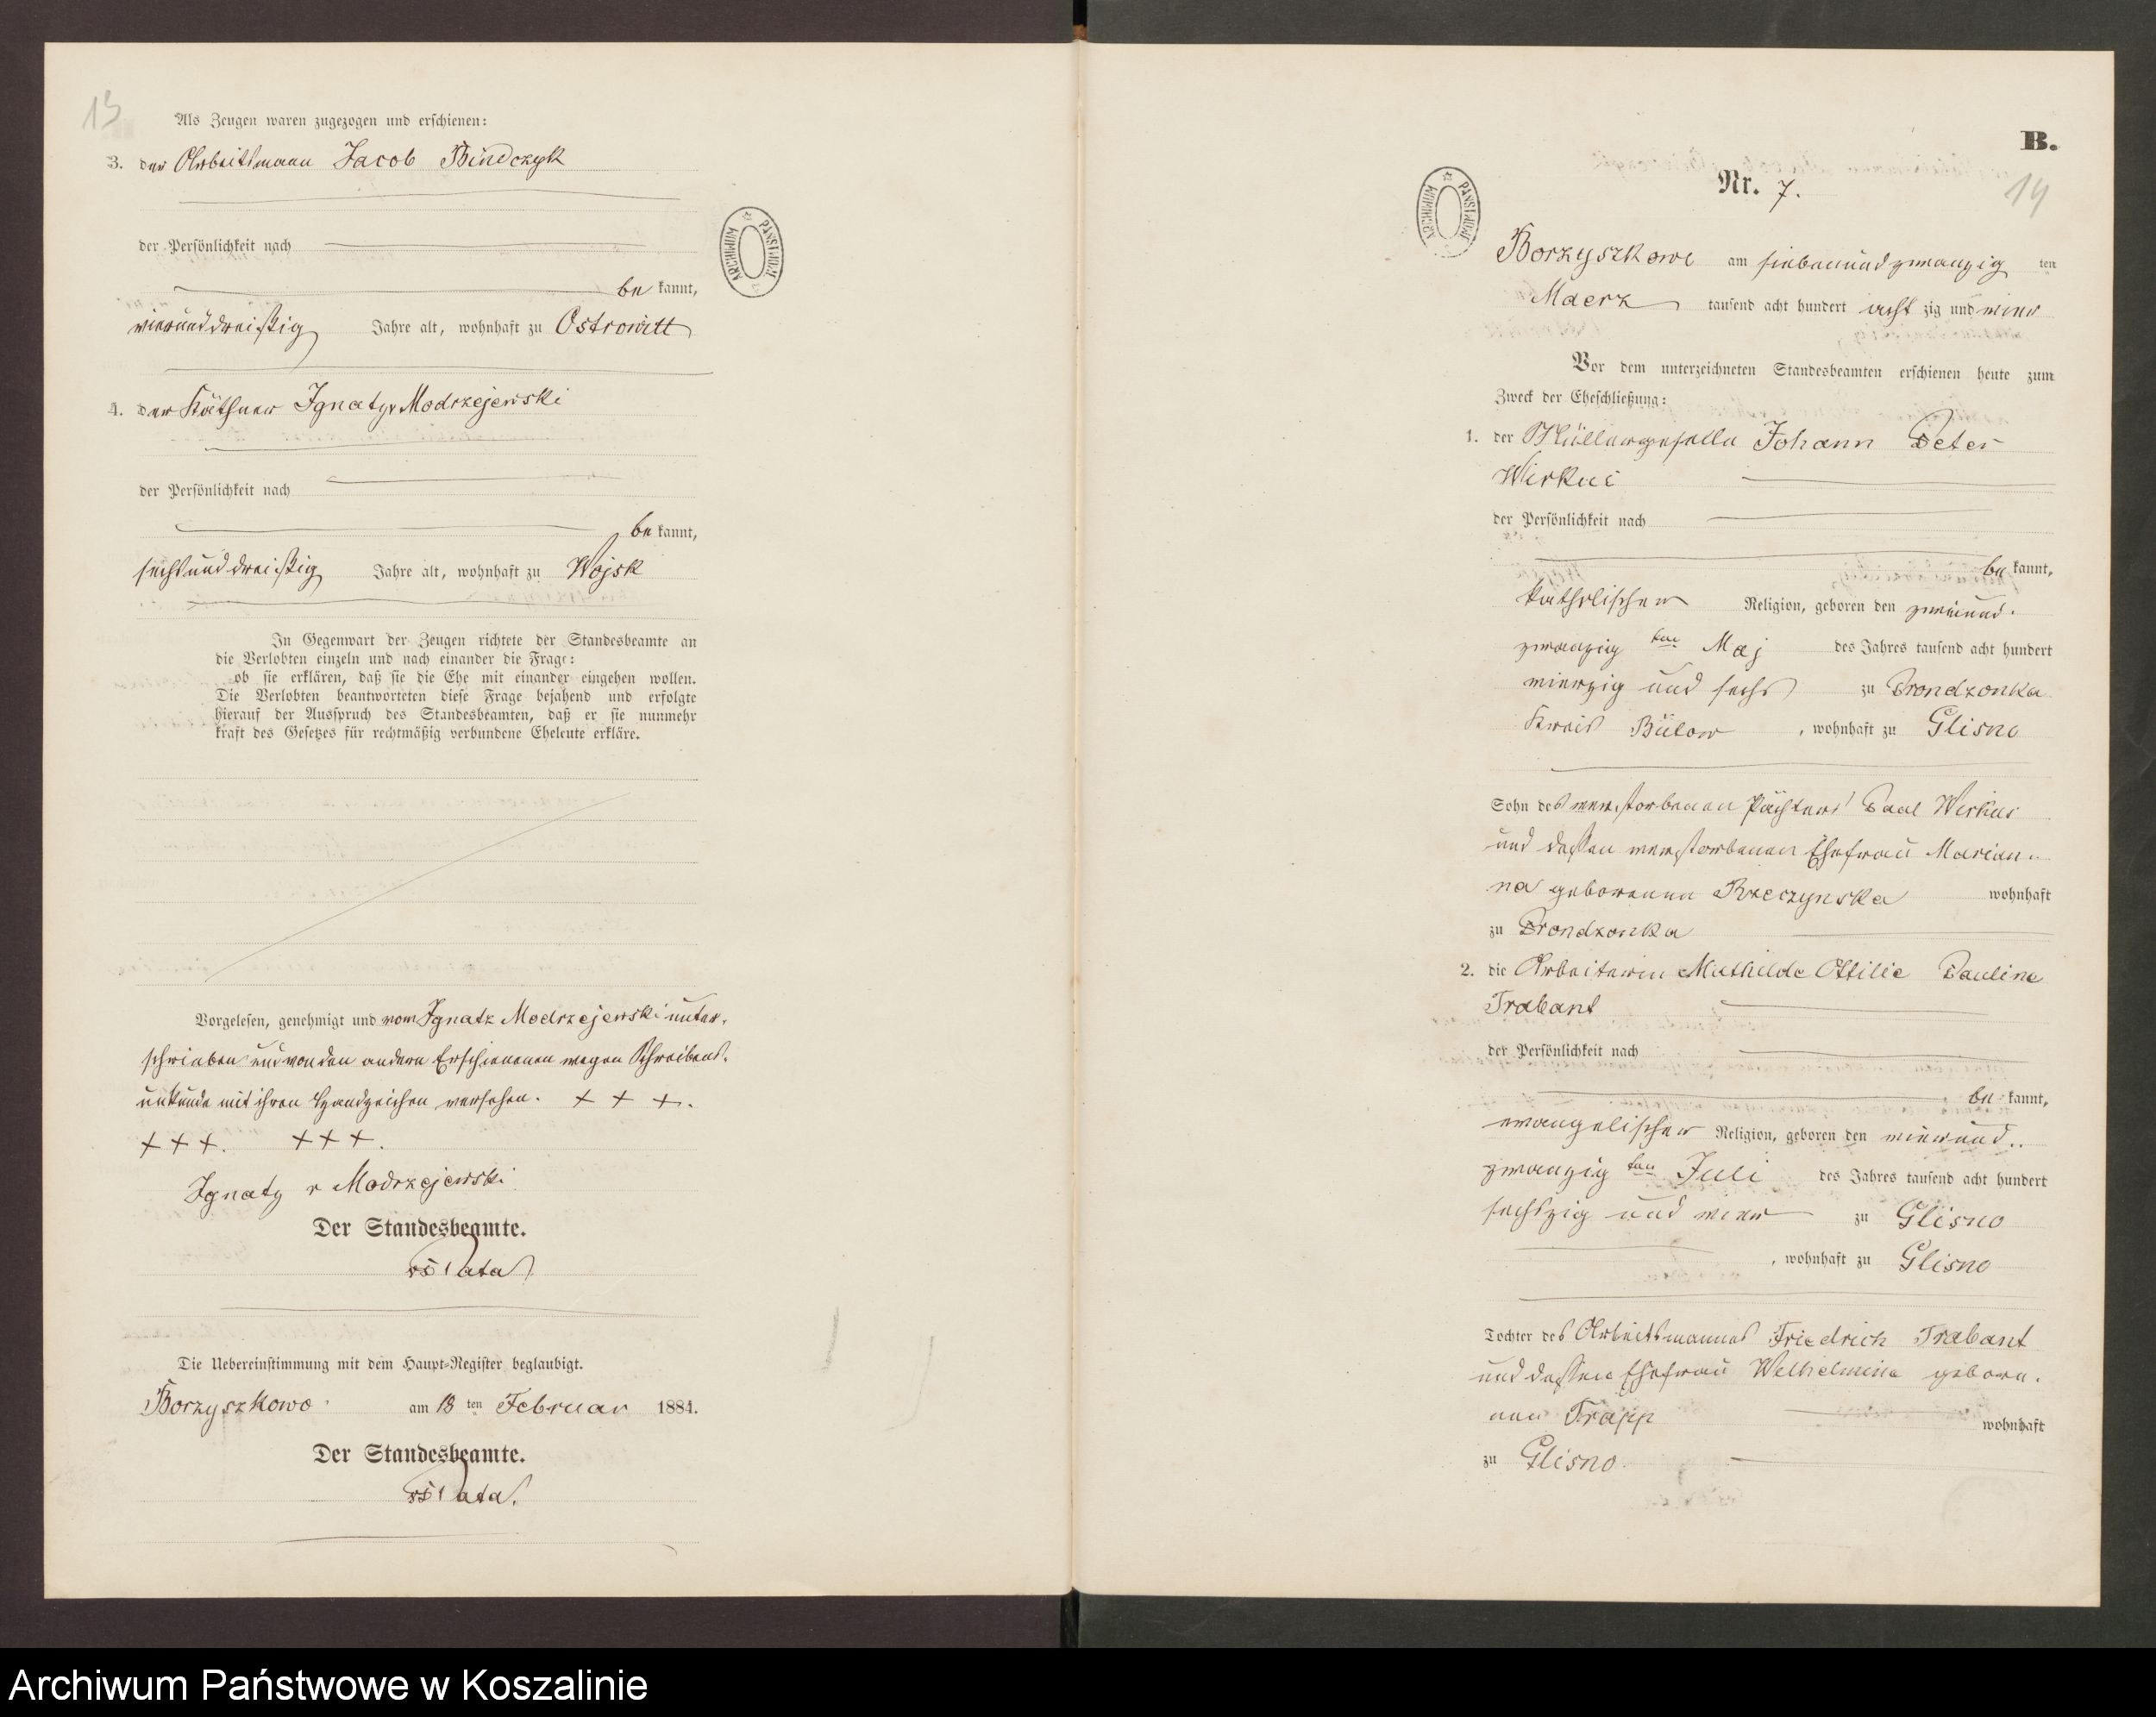 13
Als Zeugen waren zugezogen und erschienen:
3. der Arbeitsmann Jacob Bindczyk
der Persönlichkeit nach
be kannt,
vierunddreißig Jahre alt, wohnhaft zu Ostrowitt
4. der Käthner Ignatz v Modrzejewski
der Persönlichkeit nach
be kannt,
sechsunddreißig Jahre alt, wohnhaft zu Wojsk
In Gegenwart der Zeugen richtete der Standesbeamte an
die Verlobten einzeln und nach einander die Frage:
ob sie erklären, daß sie die Ehe mit einander eingehen wollen.
Die Verlobten beantworteten diese Frage bejahend und erfolgte
hierauf der Ausspruch des Standesbeamten, daß er sie nunmehr
kraft des Gesetzes für rechtmäßig verbundene Eheleute erkläre.
Vorgelesen, genehmigt und vom Ignatz Modrzejewski unter-
schrieben und von den andern Erschienenen wegen Schreibens-
unkunde mit ihren Handzeichen versehen. + + +.
+ + +. + + +.
Ignatz v Modrzejewski
Der Standesbeamte.
Die Uebereinstimmung mit dem Haupt-Register beglaubigt.
Borzyszkowo am 18 ten Februar 1884.
Der Standesbeamte.
ARCHIWUM PAŃSTWOWE
B.
Nr. 7.
14
ARCHIWUM PAŃSTWOWE
Borzyszkowo am siebenundzwanzig ten
Maerz tausend acht hundert acht zig und vier
Vor dem unterzeichneten Standesbeamten erschienen heute zum
Zweck der Eheschließung:
1. der Müllergeselle Johann Peter
Wirkus
der Persönlichkeit nach
be kannt,
katholischer Religion, geboren den zweiund-
zwanzig ten Maj des Jahres tausend acht hundert
vierzig und sechs zu Prondzonka
Kreis Bütow , wohnhaft zu Glisno
Sohn des verstorbenen Pächters Paul Wirkus
und dessen verstorbenen Ehefrau Marian-
na geborenen Rzeczynska wohnhaft
zu Prondzonka
2. die Arbeiterin Mathilde Ottilie Pauline
Trabant
der Persönlichkeit nach
be kannt,
evangelischer Religion, geboren den vierund-
zwanzig ten Juli des Jahres tausend acht hundert
sechszig und vier zu Glisno
, wohnhaft zu Glisno
Tochter des Arbeitsmannes Friedrich Trabant
und dessen Ehefrau Welhelmine gebore-
nen Trapp wohnhaft
zu Glisno.
Archiwum Państwowe w Koszalinie